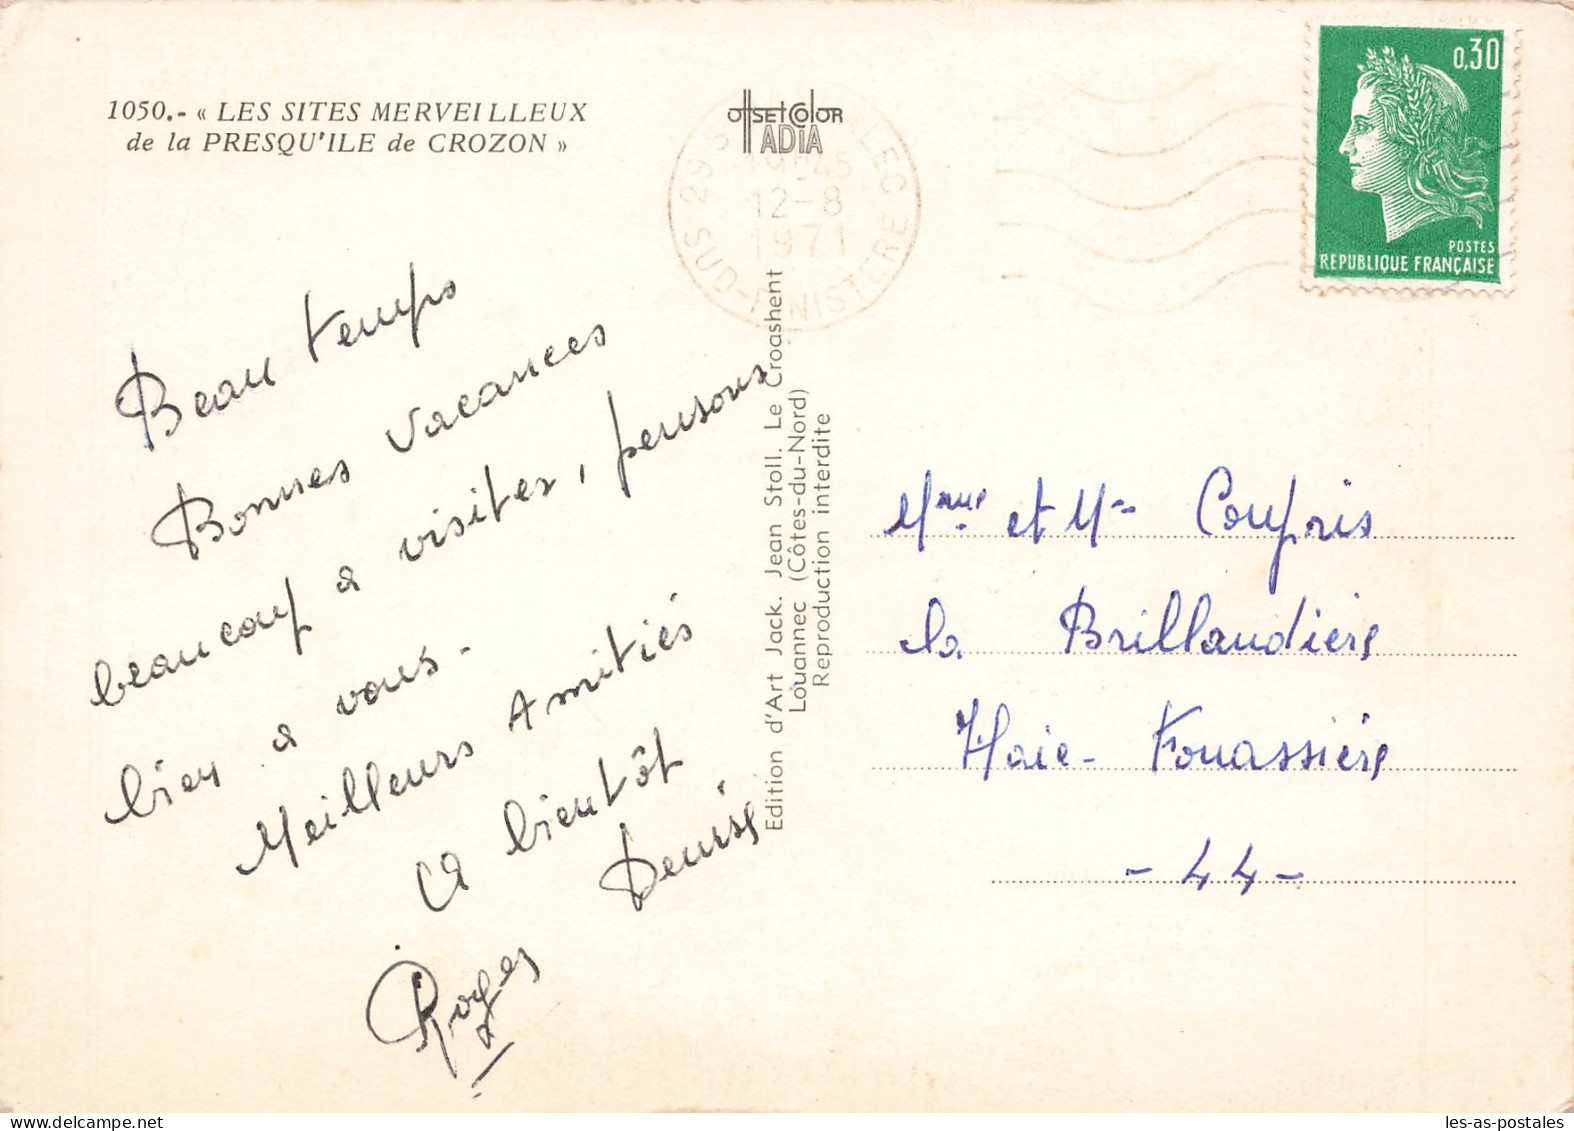 1050.- « LES SITES MERVEILLEUX
de la PRESQU'ILE de CROZON »
OffsetColor
ADIA
0,30
POSTES
REPUBLIQUE FRANÇAISE
29 S
LEC
19H45
12-8
1971
SUD-FINISTERE
Beau temps
Bonnes vacances
beaucoup a visiter, pensons
bien a vous.
Meilleurs Amitiés
A bientôt
Denise
Roger
Edition d'Art Jack. Jean Stoll. Le Croashent
Louannec (Côtes-du-Nord)
Reproduction interdite
Mme et Mr Coupris
la Brillaudière
Haie-Fouassière
- 44 -
delcampe.net
les-as-postales